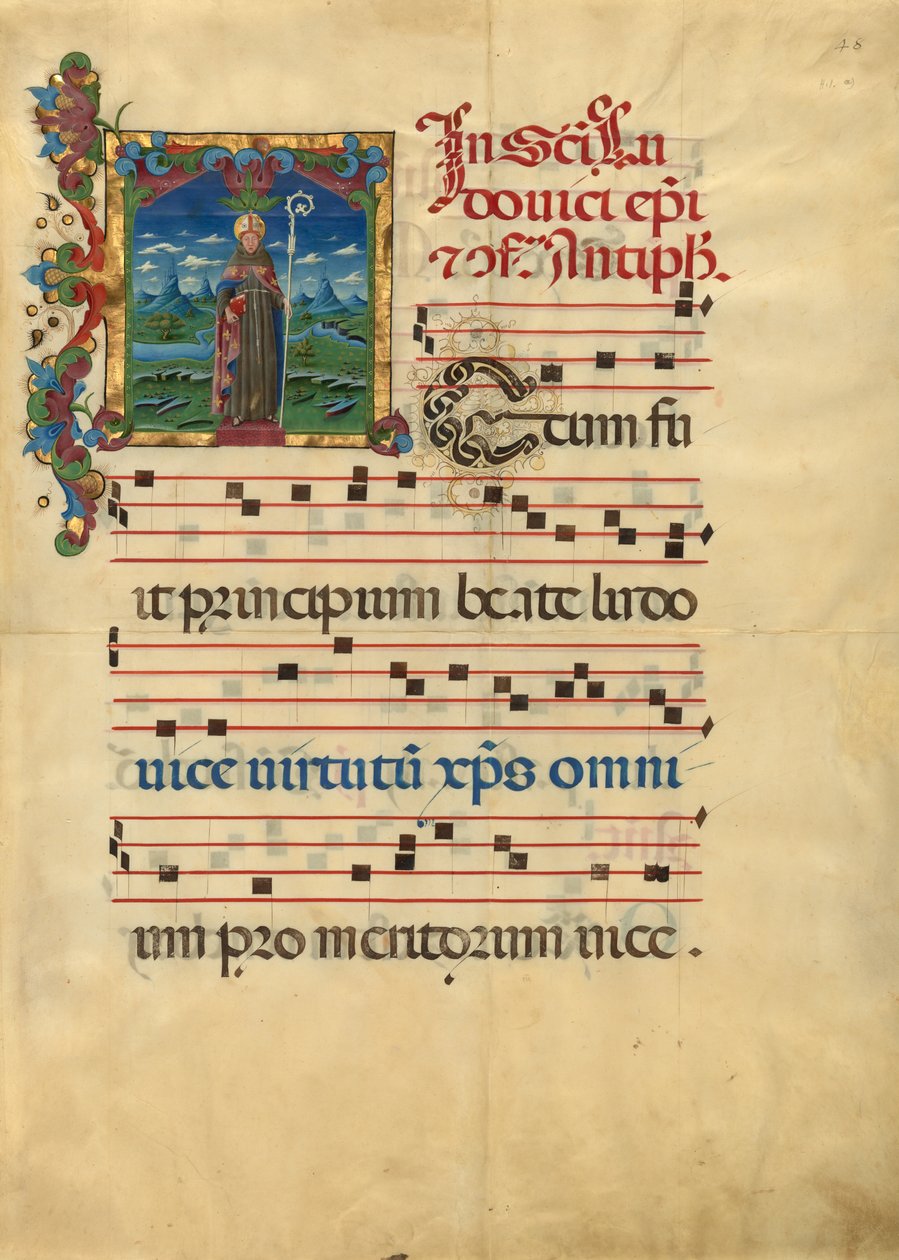 48
In Sci Lu
douici ep̄i
⁊ ↄf. Antiph.
Ecum fu
it principium beate ludo
uice uirtutū xp̄s omni
um pro meritorum uice .